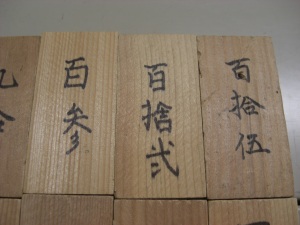 百参
百捨弐
百拾伍